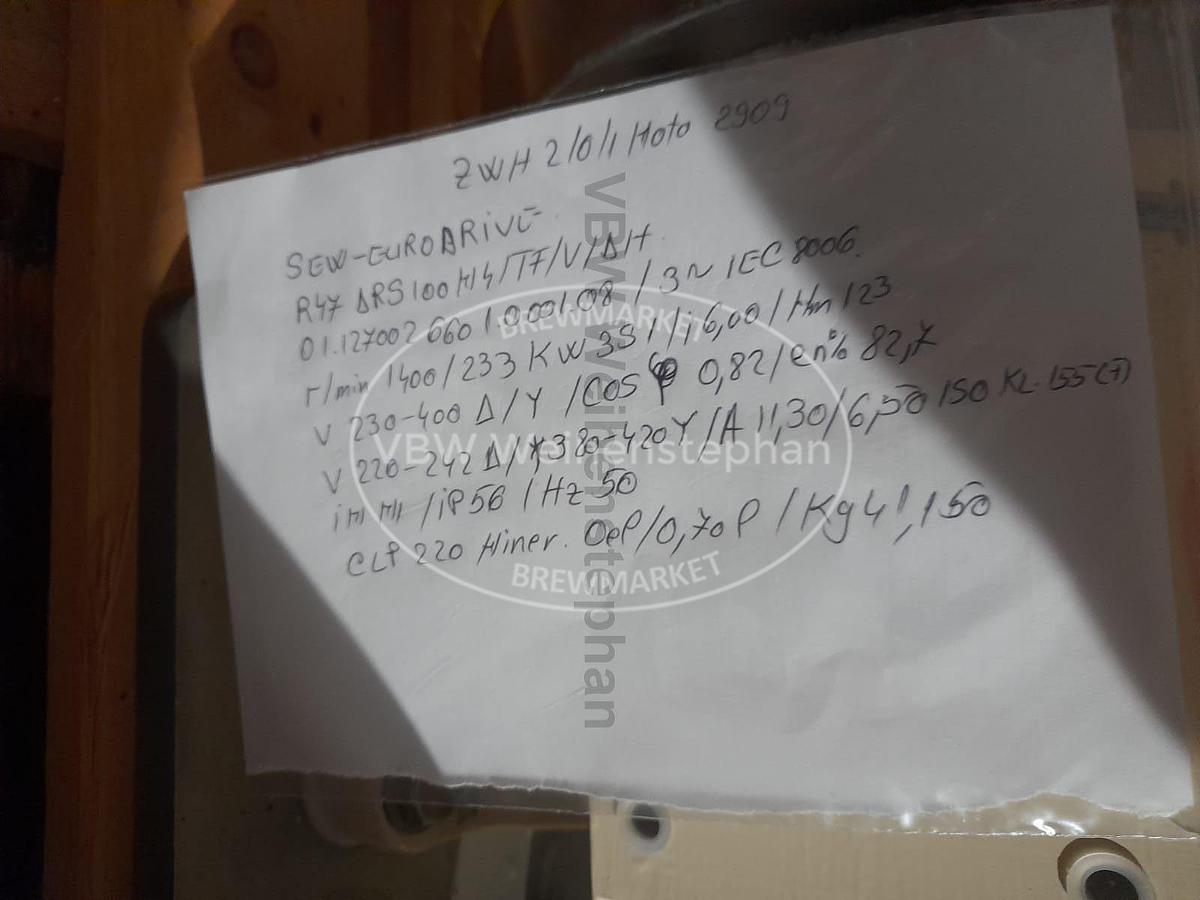 ZWH 2/0/1 Moto 2909
SEW-EURODRIVE
R47 DRS100M4/TF/V/DH
01.127002 060 1.0001.08 / 3~ IEC 8006.
r/min 1400/233 KW 3S1/i 6,00/Nm 123
V 230-400 Δ/Y /COS φ 0,82/en% 82,7
V 220-242 Δ/380-420Y/A 11,30/6,50 ISO KL. 155(F)
iM M1 /iP56 /Hz 50
CLP 220 Miner. Oel/0,70 l /Kg 41,150
BREWMARKET
VBW Weihenstephan
BREWMARKET
VBW Weihenstephan